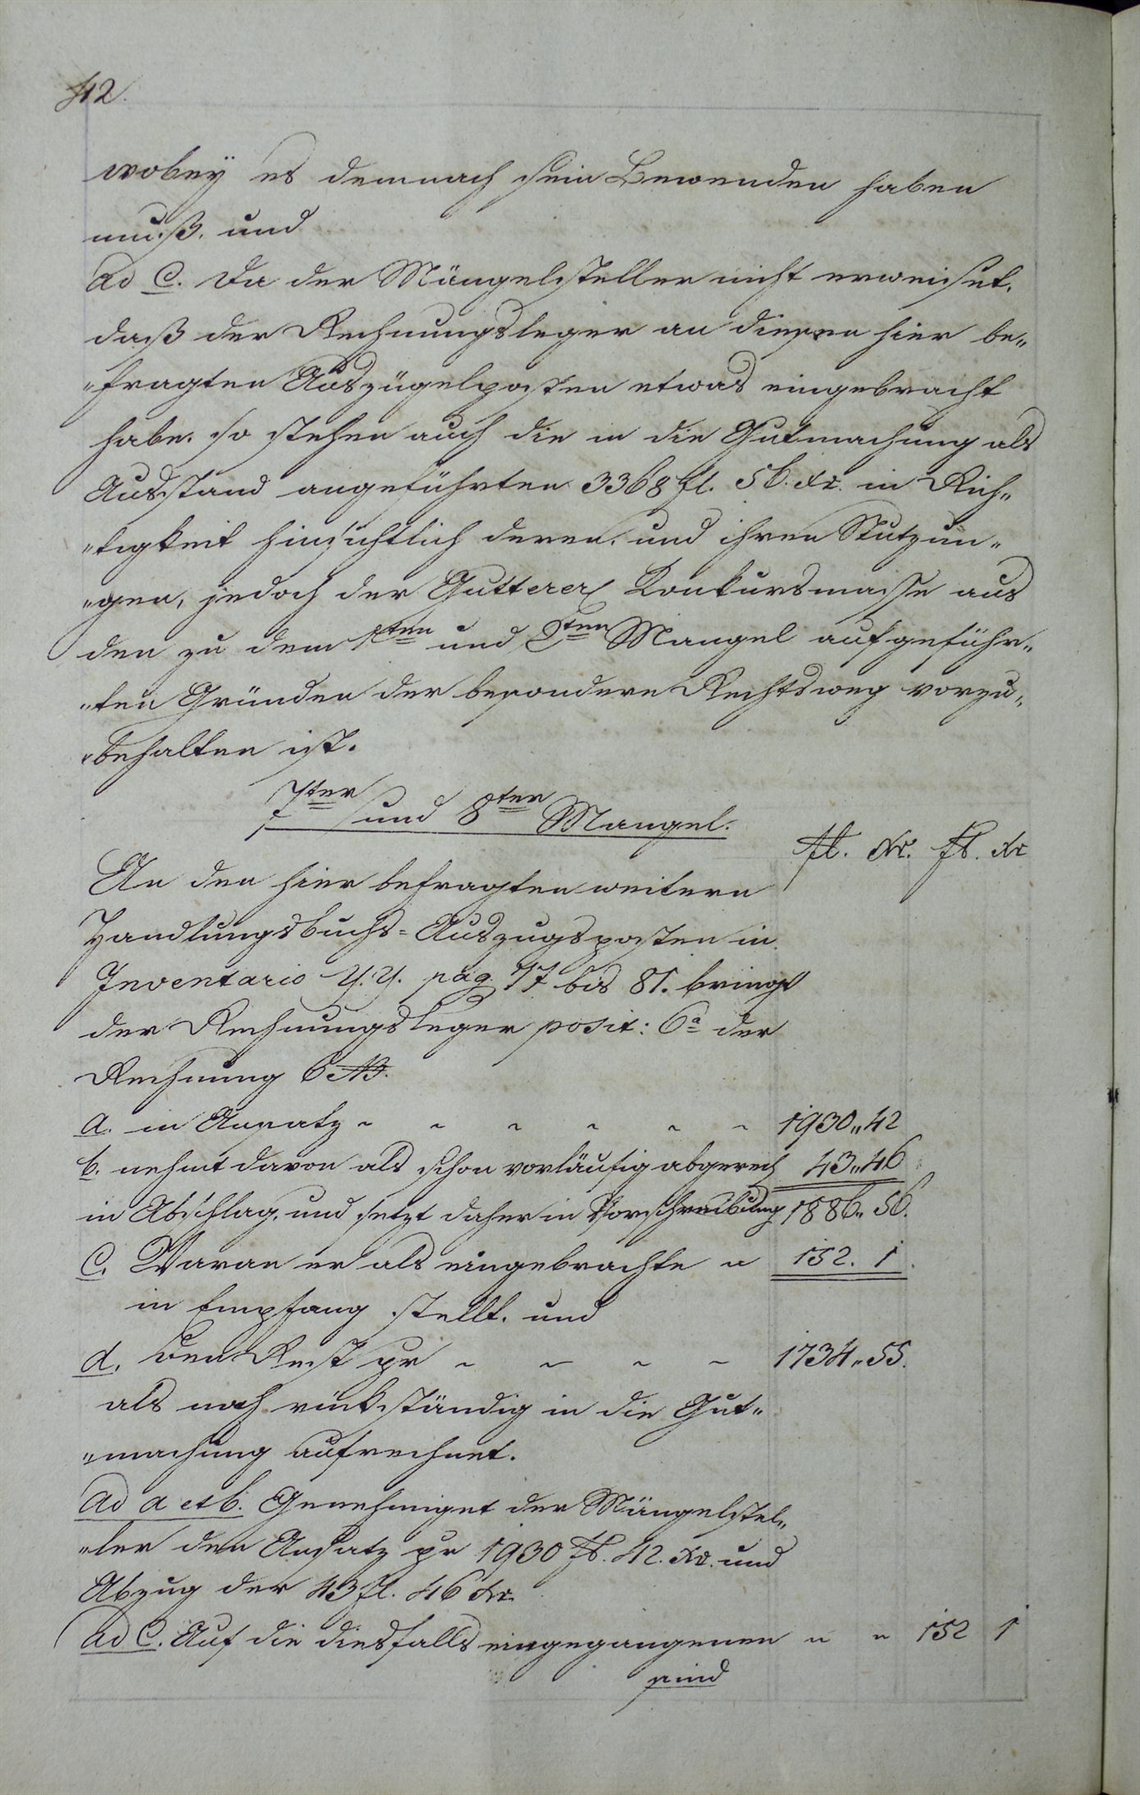 42.
wobeÿ es demnach sein Bewenden haben
muß. und
ad C. Da der Mängelsteller nicht erweiset,
daß der Rechnungsleger an diesen hier be„
„fragten Auszügelposten etwas eingebracht
habe. so stehen auch die in die Gutmachung als
Ausstand angeführten 3368 fl. 56. Xr. in Rich„
„tigkeit hinsichtlich deren, und ihren Stutzun„
„gen, jedoch der Gutterer Konkursmasse aus
den zu dem 1ten und 2ten Mangel aufgeführ„
„ten Gründen der besondere Rechtsweg vorzu„
„behalten ist.
7ter und 8ter Mangel.
fl. Xr. fl. Xr
An den hier befragten weitern
Handlungsbuchs=Auszugsposten in
Inventario Y.Y. pag 77 bis 81. bringt
der Rechnungsleger posit: 6a der
Rechnung 6
a. in Ansatz „ „ „ „ „ „ 1930„42
b. nehmt davon als schon vorläufig abgerech 43„46
in Abschlag, und setzt daher in Vorschreibung 1886„56.
C. Waran er als eingebrachte „ 152. 1.
in Empfang stellt. und
d. den Rest pr „ „ „ „ 1734„55.
als noch rückständig in die Gut„
„machung aufrechnet.
ad a et b. Genehmiget der Mängelstel„
„ler den Ansatz pr 1930 fl. 42. Xr. und
Abzug der 43 fl. 46 Xr.
ad C. Auf die diesfalls eingegangenen „ „ 152 1
sind